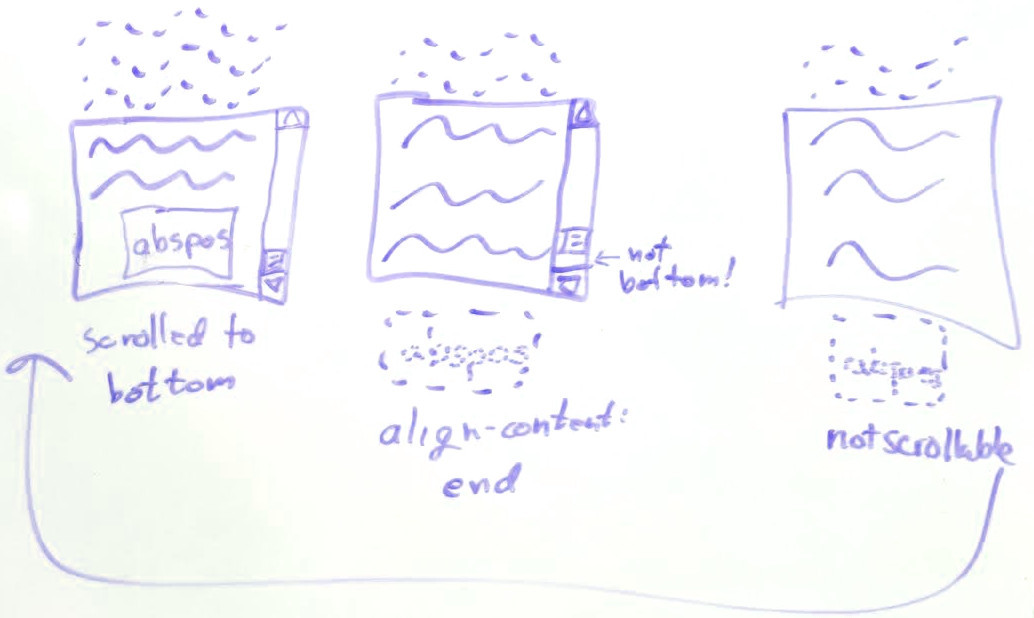 abspos
scrolled to
bottom
← not
bottom!
abspos
align-content:
end
abspos
not scrollable